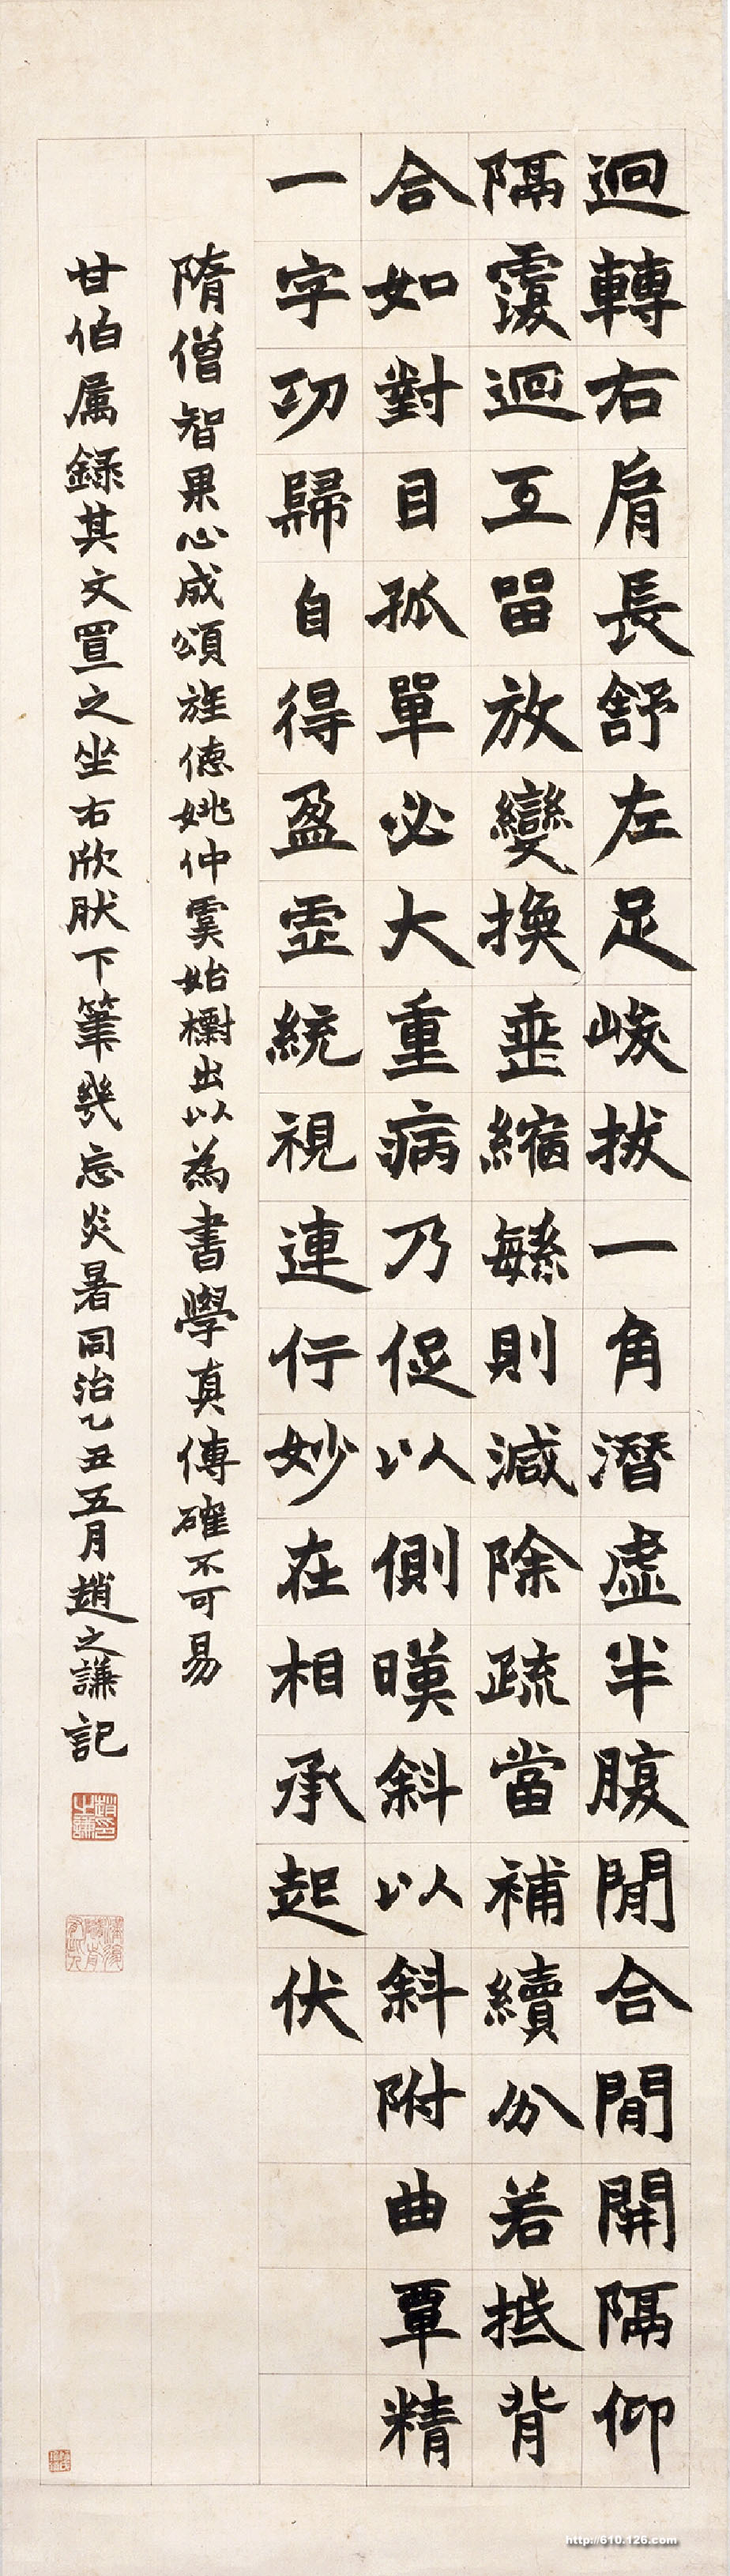 迴轉右肩長舒左足峻拔一角潛虛半腹閒合閒開隔仰
隔覆迴互留放變換垂縮繁則減除疏當補續分若抵背
合如對目孤單必大重病乃促以側暎斜以斜附曲覃精
一字功歸自得盈虛統視連行妙在相承起伏
隋僧智果心成頌旌德姚仲虞始出以為書學真傳確不可易
甘伯属錄其文置之坐右欣肰下筆幾忘炎暑同治乙丑五月趙之謙記
http://610.126.com